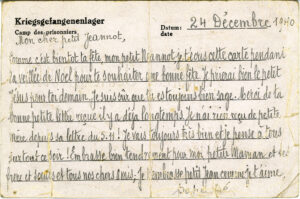 Kriegsgefangenenlager
Camp des prisonniers
Datum:
date
24 Décembre 1940
Mon cher petit Jeannot,
Comme c'est bientôt ta fête mon petit Jeannot je t'écris cette carte pendant
la veillée de Noël pour te souhaiter une bonne fête. Je prierai bien le petit
Jésus pour toi demain. Je suis sûr que tu es toujours bien sage. Merci de ta
bonne petite lettre reçue il y a déjà longtemps. Je n'ai rien reçu de petite
mère depuis sa lettre du 5.11! Je vais toujours très bien et je pense à vous
surtout ce soir! Embrasse bien tendrement pour moi petite Maman et ses
frère et sœurs et tous nos chers amis. Je t'embrasse petit Jean comme je t'aime.